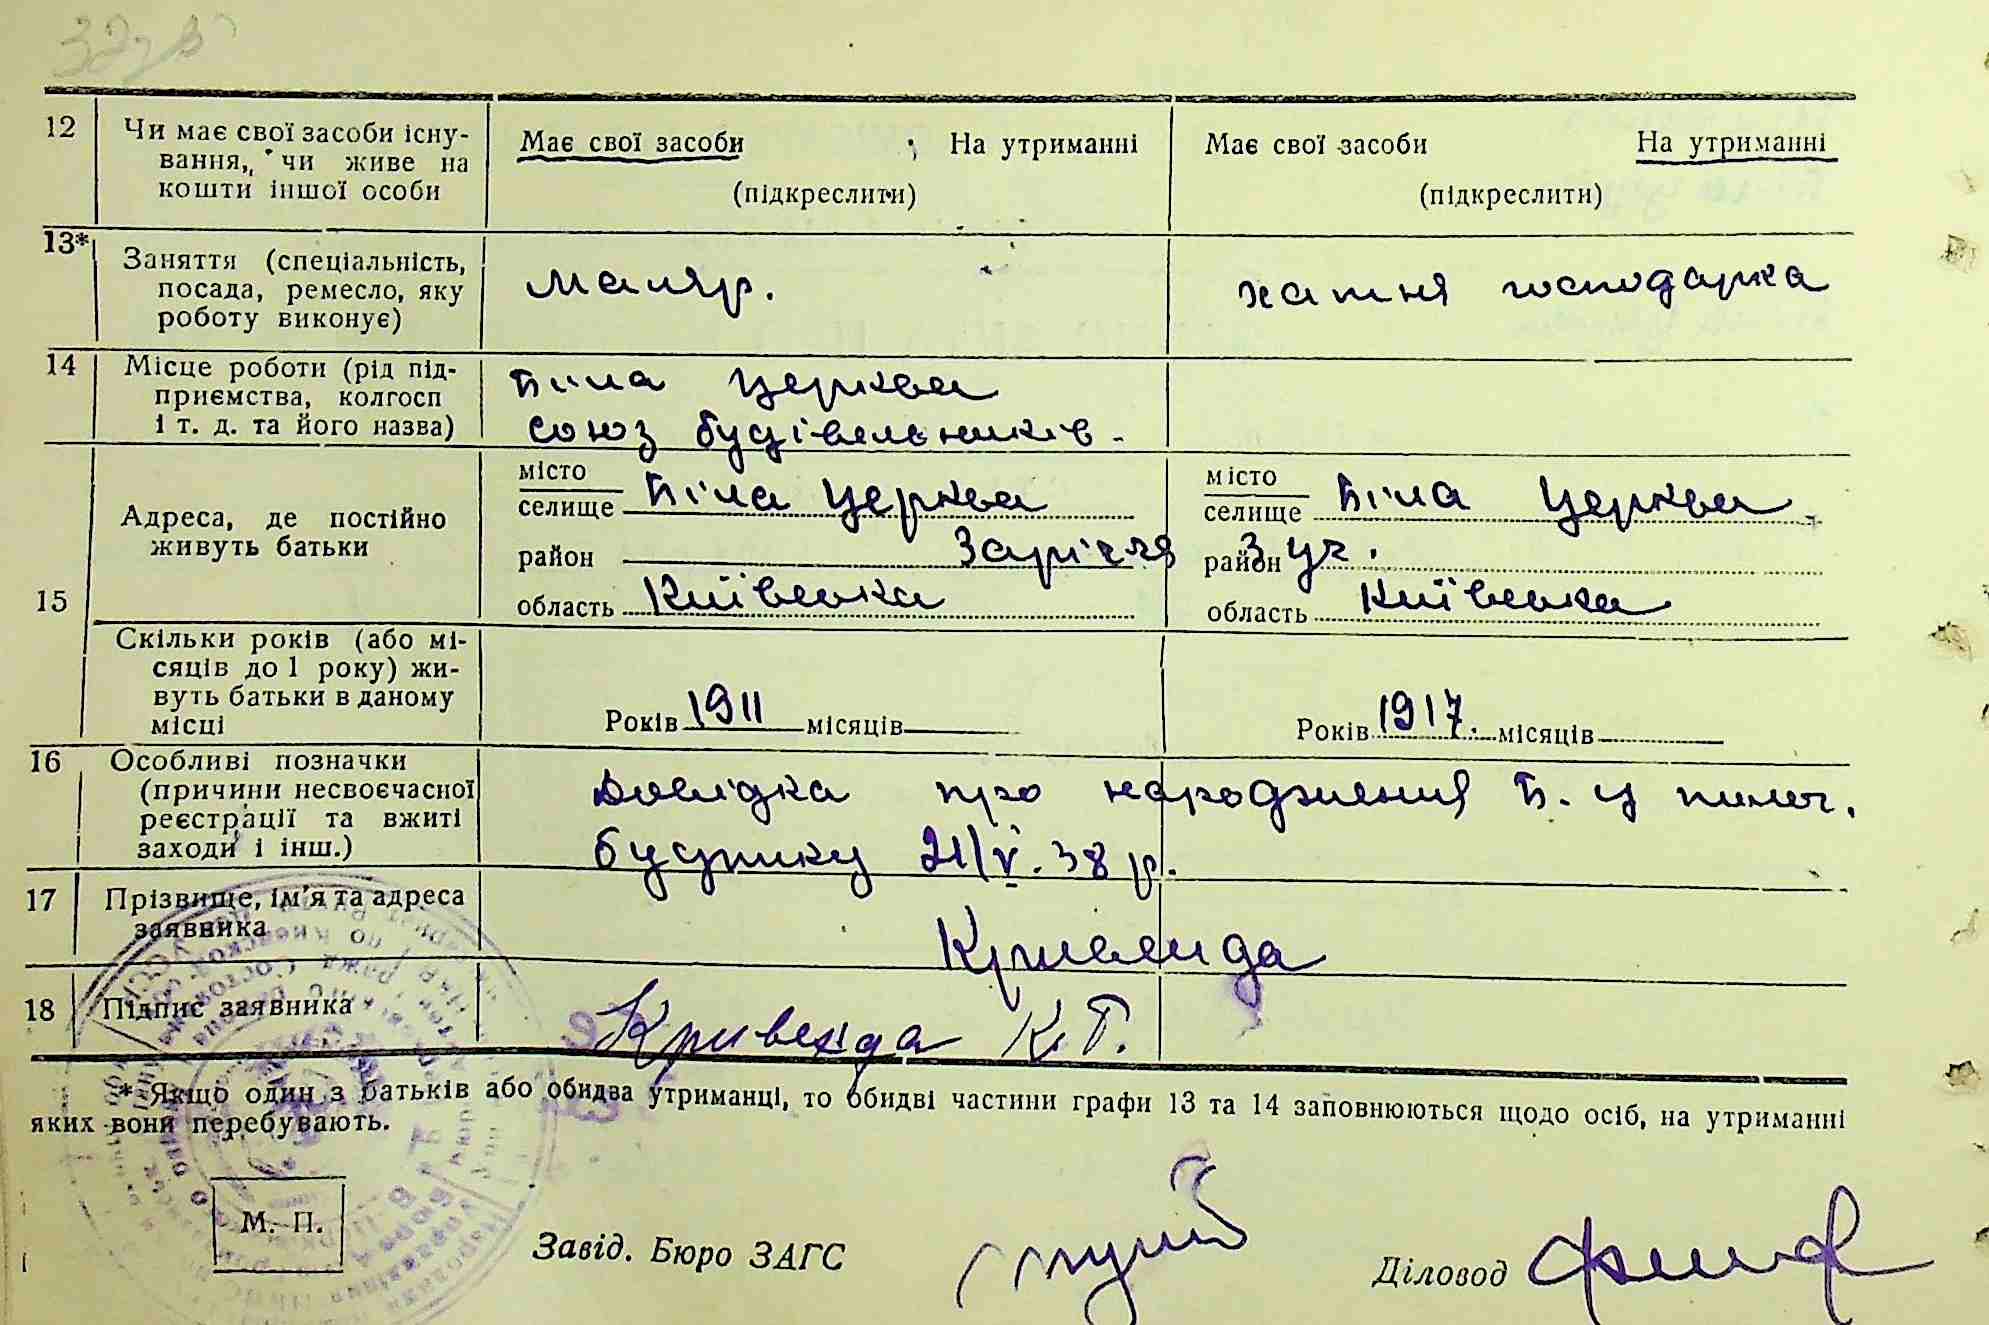 12 Чи має свої засоби існу-
вання, чи живе на
кошти іншої особи
Має свої засоби ; На утриманні
(підкреслити)
Має свої засоби На утриманні
(підкреслити)
13* Заняття (спеціальність,
посада, ремесло, яку
роботу виконує)
маляр.
хатня господарка
14 Місце роботи (рід під-
приємства, колгосп
і т. д. та його назва)
Біла Церква
союз будівельників.
15
Адреса, де постійно
живуть батьки
місто
селище Біла Церква
район Заріччя
область Київська
місто
селище Біла Церква
район 3 уч.
область Київська
Скільки років (або мі-
сяців до 1 року) жи-
вуть батьки в даному
місці
Років 1911 місяців
Років 1917. місяців
16 Особливі позначки
(причини несвоєчасної
реєстрації та вжиті
заходи і інш.)
Довідка про народження Б. Ц полог.
будинку 21/V. 38 р.
17 Прізвище, ім'я та адреса
заявника
Кривенда
18 Підпис заявника
Кривенда К.Г.
* Якщо один з батьків або обидва утриманці, то обидві частини графи 13 та 14 заповнюються щодо осіб, на утриманні
яких вони перебувають.
М. П.
Завід. Бюро ЗАГС
Діловод